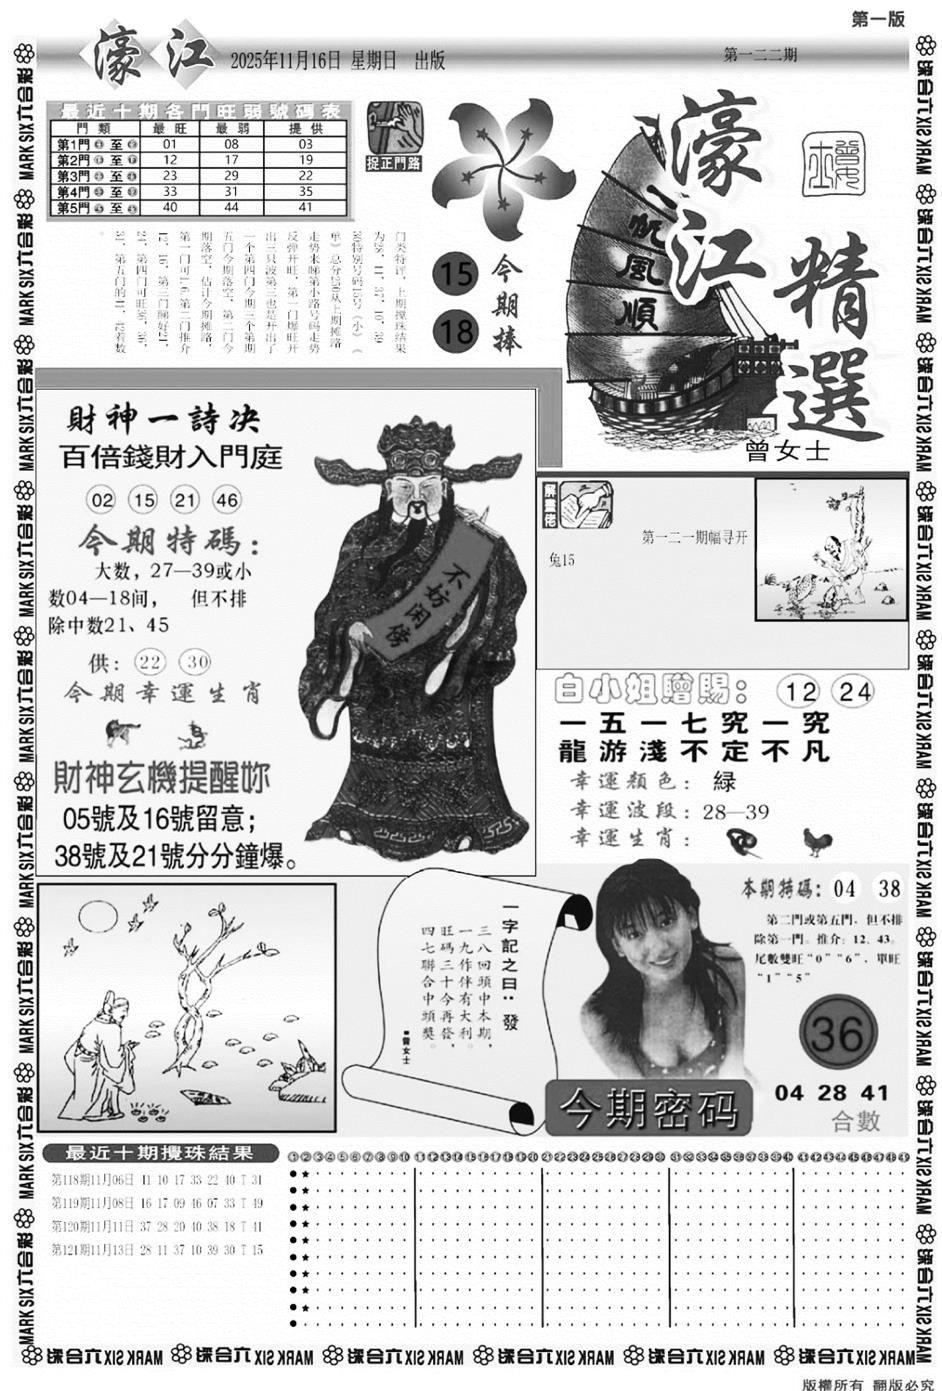 第一版
濠江
2025年11月16日 星期日 出版
第一二二期
最近十期各門旺弱號碼表
門類 最旺 最弱 提供
第1門 至 01 08 03
第2門 至 12 17 19
第3門 至 23 29 22
第4門 至 33 31 35
第5門 至 40 44 41
捉正門路
门类特评，上期搅珠结果
为28、11、37、10、39
30特别号码15号《小》《
单》总分170从上期摊路
走势来睇第小路号码走势
反弹开旺，第一门爆旺开
出三只波第三也是开出了
一个第四门今期三个第期
五门今期落空，第二门今
期落空，估计今期摊路，
第一门可1.6.第二门推介
12、16、第三门睇好21、
24、第四门可旺36、36、
31、第五门的41、42着数
。
15
18
今期捧
一帆風順
濠江
精選
曾女士
財神一詩决
百倍錢財入門庭
02 15 21 46
今期特碼：
大数，27—39或小
数04—18间， 但不排
除中数21、45
供：22 30
今期幸運生肖
財神玄機提醒妳
05號及16號留意；
38號及21號分分鐘爆。
不妨闲傍
解畫佬
第一二一期幅寻开
兔15
白小姐贈賜：12 24
一五一七究一究
龍游淺不定不凡
幸運顏色：緑
幸運波段：28—39
幸運生肖：
一字記之曰：發
三八回頭中本期，
一九作伴有大利。
旺碼三十今再發，
四七聯合中頭獎。
■曾女士
本期特碼：04 38
第二門或第五門，但不排
除第一門。推介：12、43。
尾數雙旺“0”“6”，單旺
“1”“5”
36
04 28 41
合數
今期密码
最近十期攪珠結果
第118期11月06日 41 10 17 33 22 40 T 31
第119期11月08日 16 17 09 46 07 33 T 49
第120期11月11日 37 28 20 40 38 18 T 41
第121期11月13日 28 11 37 10 39 30 T 15
1 2 3 4 5 6 7 8 9 10 11 12 13 14 15 16 17 18 19 20 21 22 23 24 25 26 27 28 29 30 31 32 33 34 35 36 37 38 39 40 41 42 43 44 45 46 47 48 49
MARK SIX六合彩
版權所有 翻版必究